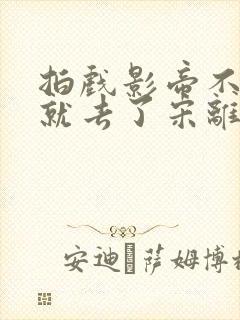 拍戲影帝不
就去了宋離
安迪 薩姆博